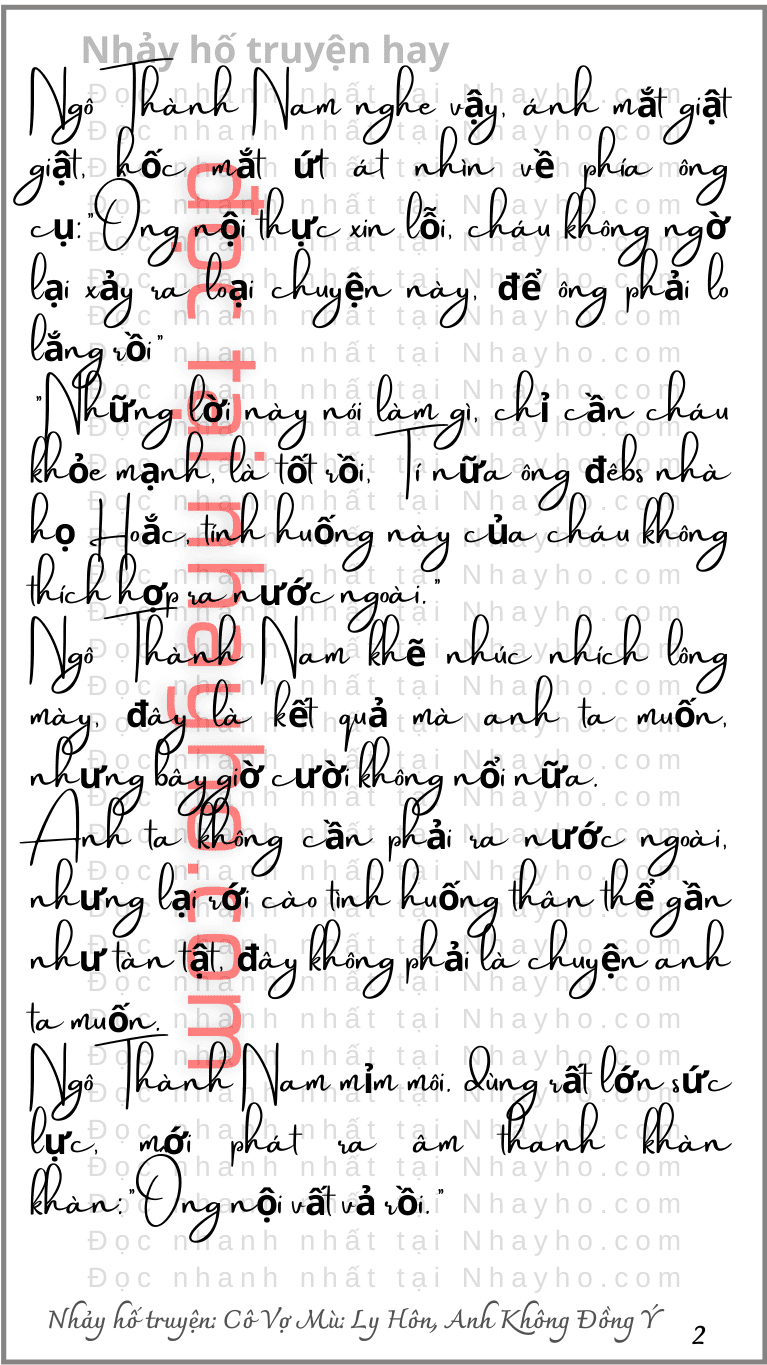 Nhảy hố truyện hay
Ngô Thành Nam nghe vậy, ánh mắt giật
giật, hốc mắt ứt át nhìn về phía ông
cụ:"Ông nội thực xin lỗi, cháu không ngờ
lại xảy ra loại chuyện này, để ông phải lo
lắng rồi"
"Những lời này nói làm gì, chỉ cần cháu
khỏe mạnh, là tốt rồi, Tí nữa ông đêbs nhà
họ Hoắc, tính huống này của cháu không
thích hợp ra nước ngoài."
Ngô Thành Nam khẽ nhúc nhích lông
mày, đây là kết quả mà anh ta muốn,
nhưng bây giờ cười không nổi nữa.
Anh ta không cần phải ra nước ngoài,
nhưng lại rới cào tình huống thân thể gần
như tàn tật, đây không phải là chuyện anh
ta muốn.
Ngô Thành Nam mỉm môi. dùng rất lớn sức
lực, mới phát ra âm thanh khàn
khàn:"Ông nội vất vả rồi."
đọc tại nhayho.com
Đọc nhanh nhất tại Nhayho.com
Nhảy hố truyện: Cô Vợ Mù: Ly Hôn, Anh Không Đồng Ý
2